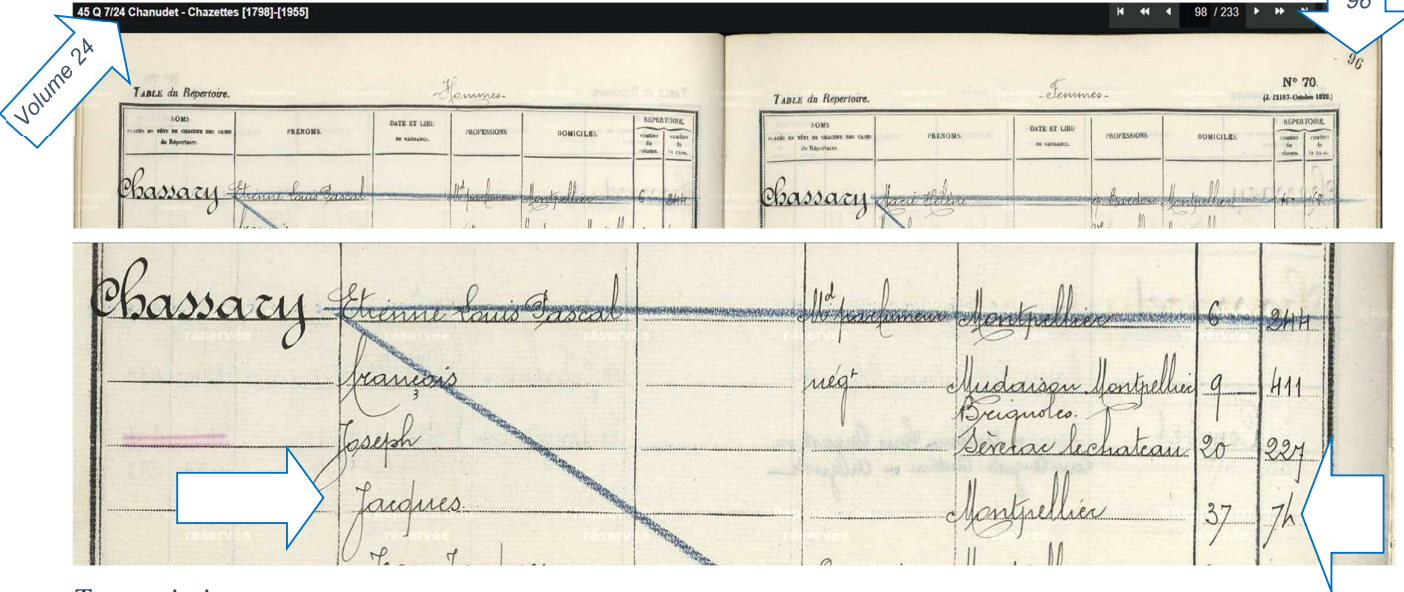 45 Q 7/24 Chanudet - Chazettes [1798]-[1955]
98 / 233
96
Volume 24
96
TABLE du Répertoire.
Hommes
NOMS
PLACÉS EN TÊTE DE CHACUNE DES CASES
du Répertoire.
PRÉNOMS.
DATE ET LIEU
DE NAISSANCE.
PROFESSIONS
DOMICILES.
RÉPERTOIRE.
numéro du volume.
numéro de la case.
Chassary Etienne Louis Pascal Md parfumeur Montpellier 6 244
TABLE du Répertoire.
Femmes
N° 70.
(J. 12167-Octobre 1929.)
NOMS
PLACÉS EN TÊTE DE CHACUNE DES CASES
du Répertoire.
PRÉNOMS.
DATE ET LIEU
DE NAISSANCE.
PROFESSIONS
DOMICILES.
RÉPERTOIRE.
numéro du volume.
numéro de la case.
Chassary Marie Hélène Montpellier
Chassary Etienne Louis Pascal Md parfumeur Montpellier 6 244
françois négt Mudaison Montpellier 9 411
3 Brignoles.
Joseph Séverac lechateau 20 227
Jacques Montpellier 37 74
réservée